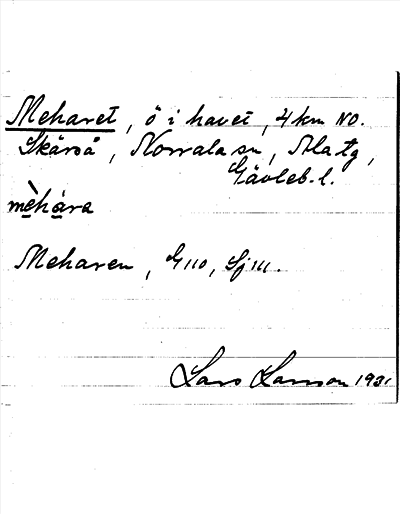 Meharet, ö i havet, 4 km NO.
Skärså, Norrala sn, Ala tg,
Gävleb. l.
mèhára
Meharen, G 110, Sj 111.
Lars Larsson 1931